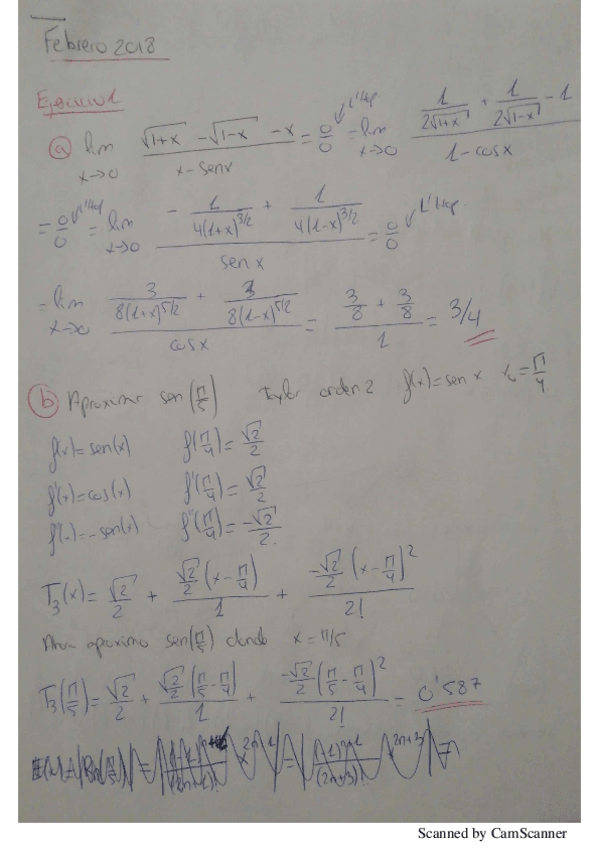 Febrero 2018
Ejercicio 1
a) lim x→0 (√(1+x) - √(1-x) - x)/(x - senx) = 0/0 L'Hop = lim x→0 (1/(2√(1+x)) + 1/(2√(1-x)) - 1)/(1 - cosx)
= 0/0 L'Hop = lim x→0 (- 1/(4(1+x)^(3/2)) + 1/(4(1-x)^(3/2)))/(sen x) = 0/0 L'Hop.
= lim x→0 (3/(8(1+x)^(5/2)) + 3/(8(1-x)^(5/2)))/(cosx) = (3/8 + 3/8)/1 = 3/4
b) Aproximar sen(π/5) Taylor orden 2 f(x) = sen x x₀ = π/4
f(x) = sen(x) f(π/4) = √2/2
f'(x) = cos(x) f'(π/4) = √2/2
f''(x) = -sen(x) f''(π/4) = -√2/2
T₃(x) = √2/2 + (√2/2 (x - π/4))/1 + (-√2/2 (x - π/4)²)/2!
Ahora aproximo sen(π/5) donde x = π/5
T₃(π/5) = √2/2 + (√2/2 (π/5 - π/4))/1 + (-√2/2 (π/5 - π/4)²)/2! = 0'587
Scanned by CamScanner